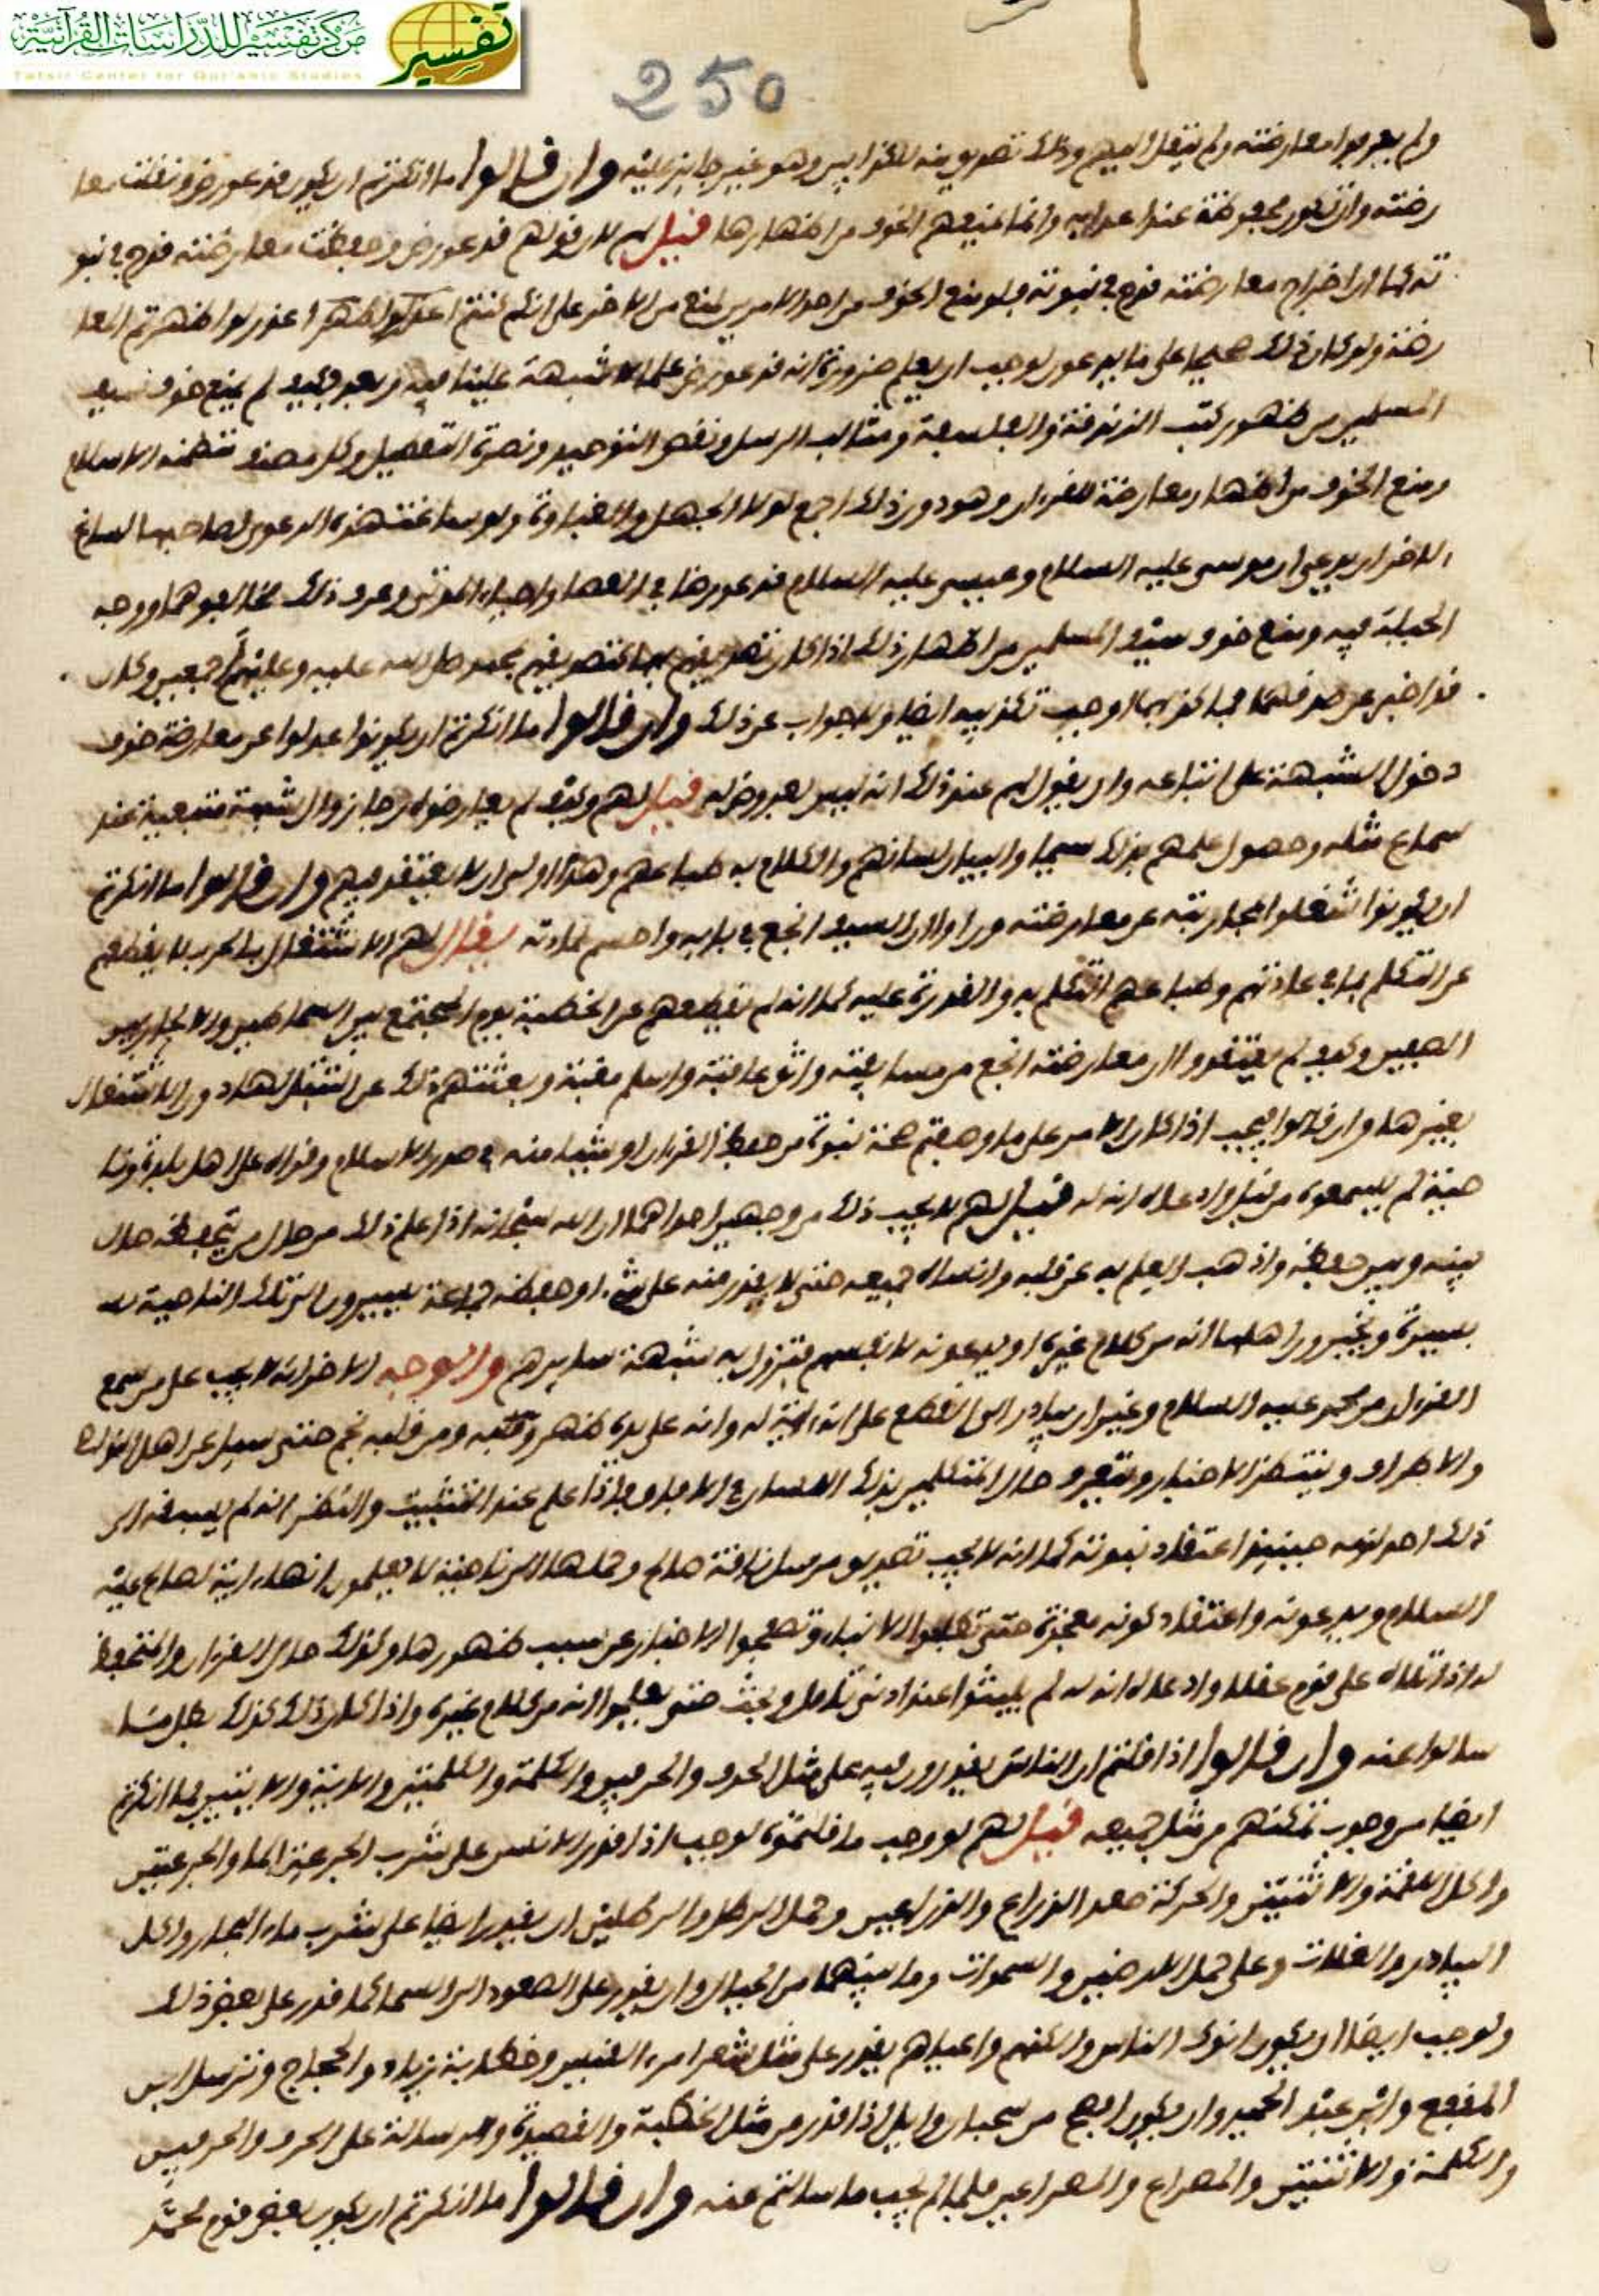 مركز تفسير للدراسات القرآنية
Tafsir Center for Qur'anic Studies
تفسير
250
ولم يعرفوا معارضته ولم ينقل اليهم وذلك تصديق منه للكذابين وهو غير جايز عليه وان قالوا ما انكرتم ان يكون قد عورض ونقلت معا
رضته وان تكون محفوظة عند اعدايه وانما يمنعهم الخوف من اظهارها قيل لهم لان قولهم قد عورض وحفظت معارضته قدح في نبو
ته كما ان اخراج معارضته قدح في نبوته فلو منع الخوف من احد الامرين لمنع من الاخر على انكم كنتم اعذر لو اظهرتم المعا
رضة ولو كان ذلك صحيحا على ما يدعون لوجب ان يعلم ضرورة انه قد عورض علما لا شبهة علينا فيه وبعد فكيف لم يمنع خوف سيف
المسلمين من ظهور كتب الزندقة والفلسفة ومثالب الرسل ونقض التوحيد ونصرة التعطيل وكل مصنف تنظمنه الاسلام
ومنع الخوف من اظهار معارضة للقران وهو دون ذلك اجمع لولا الجهل والغباوة ولو ساغت هذه الدعوى لصاحبها لساغ
لاخر ان يدعي ان موسى عليه السلام وعيسى عليه السلام قد عورضا في العصا واحياء الموتى وعرف ذلك مخالفوهما ووجه
الحيلة فيه ومنع خوف سيف المسلمين من اظهار ذلك اذا كان تصديقهم بهما كتصديقهم بمحمد صلى الله عليه وعليهم اجمعين وكان
قد اخبر عن صدقهما فما كذبهما اوجب تكذيبه ايضا ولا جواب عن ذلك وان قالوا ما انكرتم ان يكونوا عدلوا عن معارضة خوف
دخول الشبهة على اتباعه وان يقول لهم عند ذلك انه ليس بعروض له قيل لهم وكيف لم يعارضوه رجا زوال شبهة متبعيه عند
سماع مثله وحصول علمهم بذلك سيما والبيان لسانهم والكلام به طباعهم وهذا اولى ان لا يعتقد فيهم وان قالوا ما انكرتم
ان يكونوا شغلوا بمحاربته عن معارضته وراوا ان السيف انجع في بابه واحسم لمادته يقال لهم الاشتغال بالحرب لا يقطعهم
عن التكلم بما في عادتهم وطباعهم التكلم به والقدرة عليه كما انه لم يقطعهم عن الخطبة يوم المجتمع بين السماطين والاعلى بين
الصفين وكيف لم يعتقدوا ان معارضته انجع من مسايفته واثوى عاقبة واسلم مغبة ويعتمدهم ذلك عن الشغل لها دون الاشتغال
بغيرها وان قالوا فيجب اذا كان الامر على ما وصفتم صحة نبوة من حفظ القران او شيئا منه في صدر الاسلام وقراه على اهل بلدة ونا
حية لم يسمعوه من قبل وادعاه انه له قيل لهم لا يجب ذلك من وجهين احدهما ان الله سبحانه اذا علم ذلك من حال من يحفظه حال
بينه وبين حفظه واذهب العلم به عن قلبه وانساه جميعه حتى لا يقدر منه على شيء او حفظه جماعة يسيرون الى تلك الناحية
يسيرة ويخبرون اهلها انه من كلام غيره او يدعونه لانفسهم فتزول به شبهة سايرهم والوجه الاخر انه لا يجب على من سمع
القران من محمد عليه السلام وغيره ان يبادر الى القطع على انه اية له وانه على يده ظهر ومن قلبه نجم حتى يسل عن اهل النواحي
والاطراف وينتظر الاخبار ويتعرف حال المتكلمين بذلك اللسان في الافاق فاذا علم عند التثبيت والنظر انه لم يسبقه الى
ذلك احد لزمه حينيذ اعتقاد نبوته كما انه لا يجب تصديق من سل ناقة صالح وحملها الى ناحية لا يعلمون انها اية لصالح عليه
السلام ويدعونه واعتقاد كونه معجزة حتى تطلبوا الانباء وتصفحوا الاخبار عن سبب ظهورها وكذلك حال القران والمتحفظ
له اذا تلاه على قوم عقلا وادعاه انه له لم يلبثوا عند ادنى تامل وبحث حتى يعلموا انه من كلام غيره واذا كان ذلك كذلك بطل ما
سالوا عنه وان قالوا اذا قلتم ان الناس يقدرون فيه على مثل الحرف والحرفين والكلمة والكلمتين والاية والايتين فما انكرتم
ايضا من وجوب تمكنهم من مثل جميعه قيل لهم لو وجب ما قلتموه لوجب اذا قدر الانس على شرب الجرعة الما والجرعتين
واكل اللقمة والاثنتين والحركة صعد الذراع والذراعين وحمل الرطل والرطلين ان يقدر ايضا على شرب ماء البحار واكل
البيادر والغلات وعلى حمل الارضين والسموات وما بينهما من الجبال وان يقدر على الصعود الى السما كما قدر على بعض ذلك
ولوجب ايضا ان يكون انوك الناس والكنهم واعياهم يقدر على مثل شعر امرء القيس وخطابة زياد والحجاج وترسل ابن
المقفع وابن عبد الحميد وان يكون افصح من سحبان وايل اذا قدر من مثل الخطبة والقصيدة والرسالة على الحرف والحرفين
والكلمة والاثنتين والمصراع والمصراعين فلما لم يجب ما سالتم عنه وان قالوا ما انكرتم ان يكون بعض قوم محمد